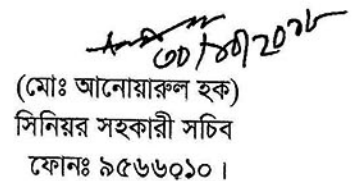 ৩০/১০/২০১৮
(মোঃ আনোয়ারুল হক)
সিনিয়র সহকারী সচিব
ফোনঃ ৯৫৬৬০১০।